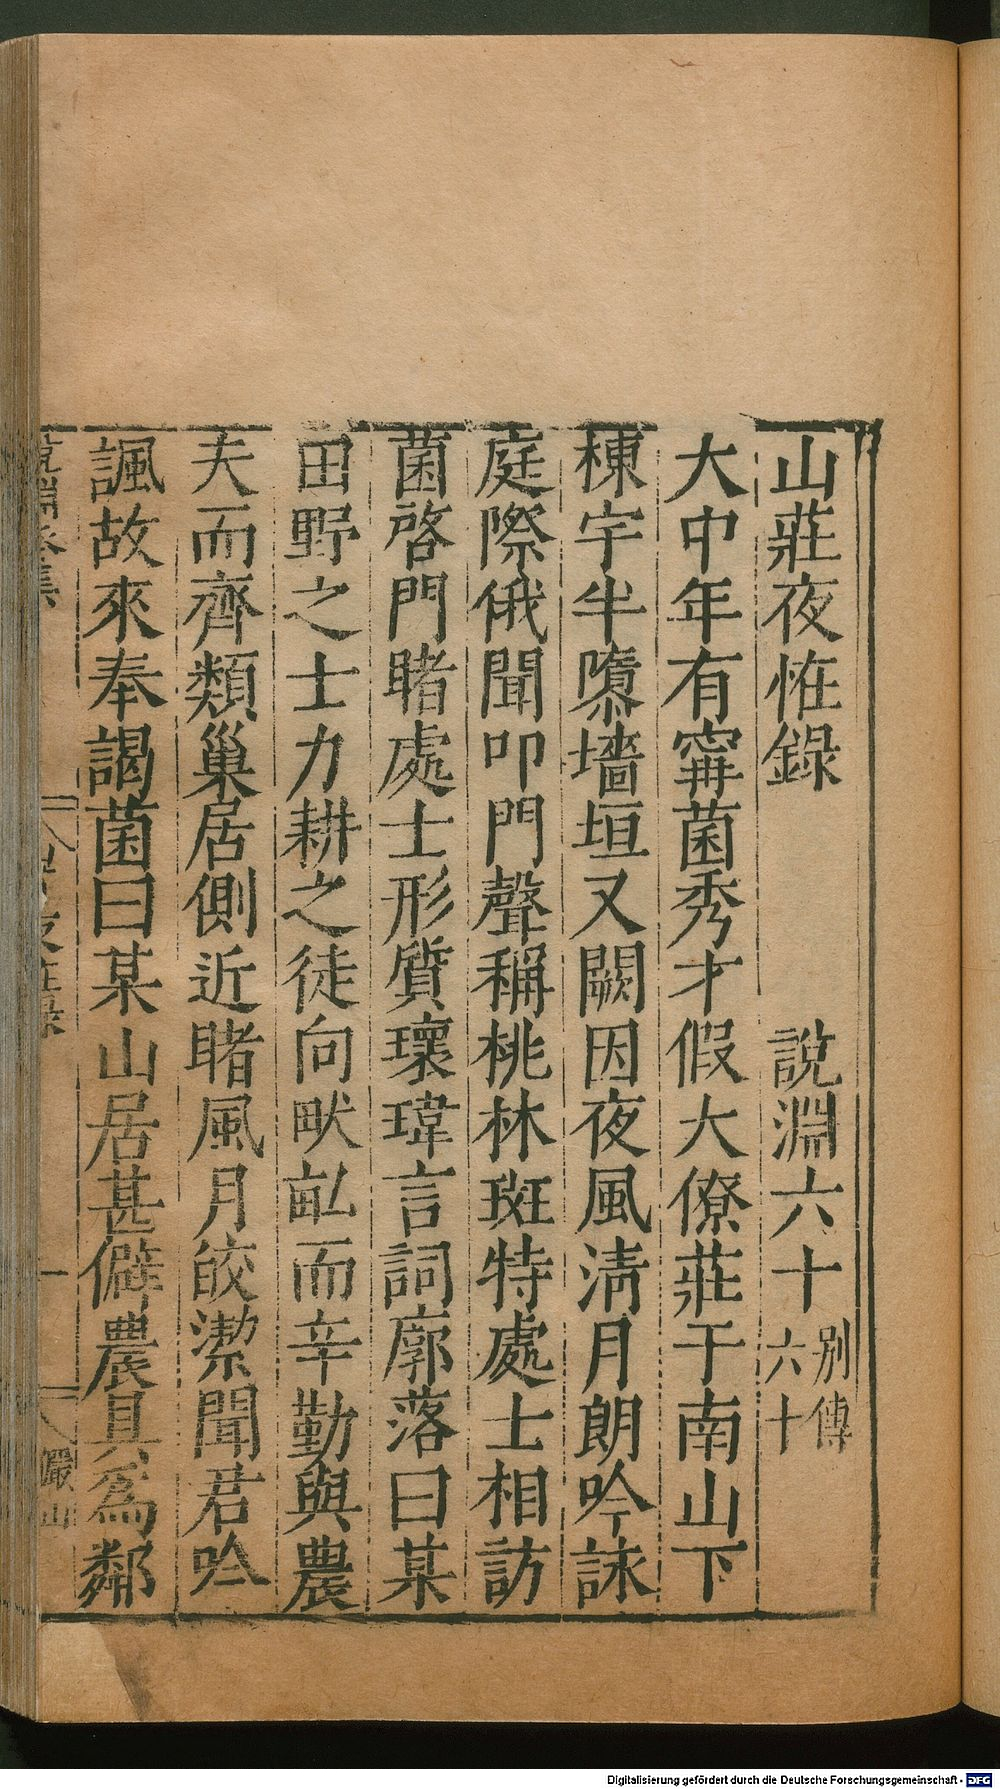 山莊夜恠錄 說淵六十 别傳六十
大中年有寗菌秀才假大僚莊于南山下
棟宇半隳墻垣又闕因夜風淸月朗吟詠
庭際俄聞叩門聲稱桃林斑特處士相訪
菌啓門睹處士形質瓌瑋言詞廓落曰某
田野之士力耕之徒向畎畝而辛勤與農
夫而齊類巢居側近睹風月皎潔聞君吟
諷故來奉謁菌曰某山居甚僻農具爲鄰
儼山
Digitalisierung gefördert durch die Deutsche Forschungsgemeinschaft - DFG